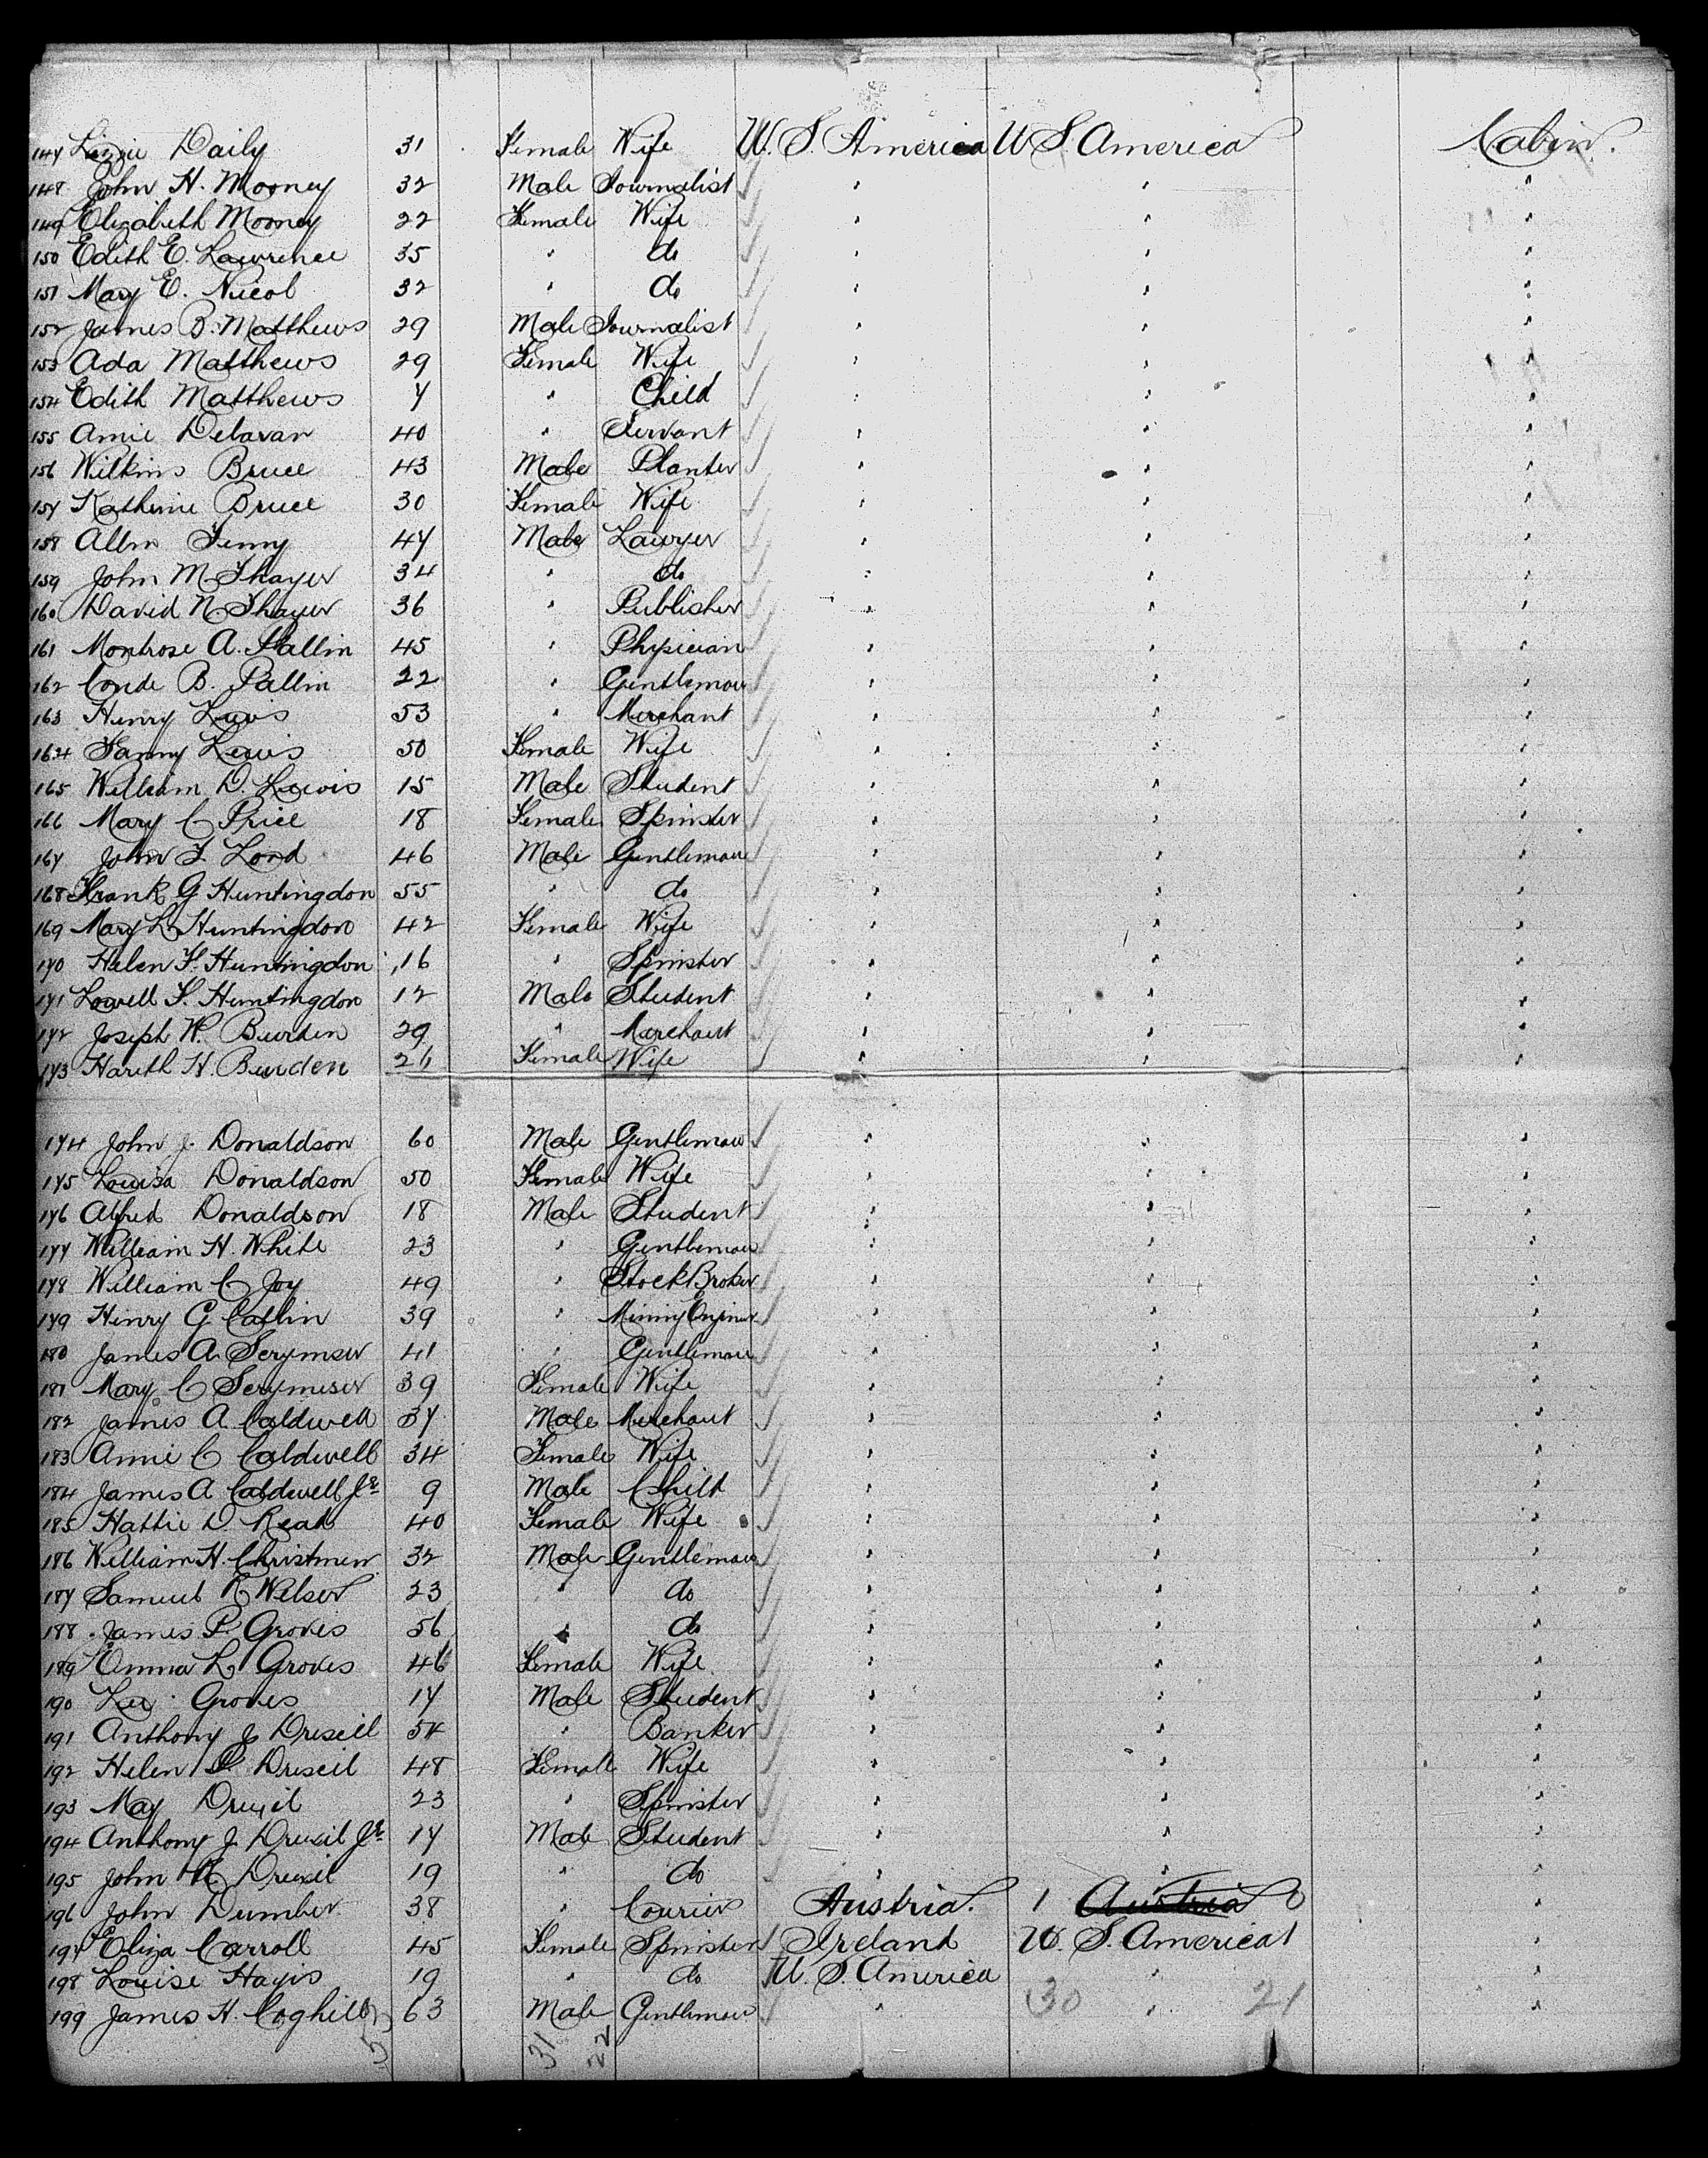 147 Lizzie Daily 31 Female Wife U. S. America U S. America Cabin.
148 John H. Mooney 32 Male Journalist " " "
149 Elizabeth Mooney 22 Female Wife " " "
150 Edith E. Lawrence 35 " do " " "
151 Mary E. Nicol 32 " do " " "
152 James B. Matthews 29 Male Journalist " " "
153 Ada Matthews 29 Female Wife " " "
154 Edith Matthews 4 " Child " " "
155 Amie Delavan 40 " Servant " " "
156 Wilkins Bruce 43 Male Planter " " "
157 Katherine Bruce 30 Female Wife " " "
158 Allen 47 Male Lawyer " " "
159 John M. Thayer 34 " do " " "
160 David N. Thayer 36 " Publisher " " "
161 Montrose A. Pallin 45 " Physician " " "
162 Conde B. Pallin 22 " Gentleman " " "
163 Henry Lewis 53 " Merchant " " "
164 Fanny Lewis 50 Female Wife " " "
165 William D. Lewis 15 Male Student " " "
166 Mary C Price 18 Female Spinster " " "
167 John T. Lord 46 Male Gentleman " " "
168 Frank G Huntingdon 55 " do " " "
169 Mary L Huntingdon 42 Female Wife " " "
170 Helen F. Huntingdon 16 " Spinster " " "
171 Lowell F. Huntingdon 12 Male Student " " "
172 Joseph W. Burden 29 " Merchant " " "
173 H. Burden 26 Female Wife " " "
174 John J. Donaldson 60 Male Gentleman " " "
175 Louisa Donaldson 50 Female Wife " " "
176 Alfred Donaldson 18 Male Student " " "
177 William H. White 23 " Gentleman " " "
178 William C Joy 49 " Stock Broker " " "
179 Henry G Catlin 39 " Mining Engineer " " "
180 James A. Scrymser 41 " Gentleman " " "
181 Mary C Scrymser 39 Female Wife " " "
182 James A. Caldwell 37 Male Merchant " " "
183 Annie C Caldwell 34 Female Wife " " "
184 James A Caldwell Jr 9 Male Child " " "
185 Hattie D. Read 40 Female Wife " " "
186 William H. 32 Male Gentleman " " "
187 Samuel R 23 " do " " "
188 James P. Groves 56 " do " " "
189 Emma L Groves 46 Female Wife " " "
190 Lee Groves 17 Male Student " " "
191 Anthony J Drexell 54 " Banker " " "
192 Helen Drexeil 48 Female Wife " " "
193 May Drexil 23 " Spinster " " "
194 Anthony J. Drexil Jr 17 Male Student " " "
195 John R Drexil 19 " do " " "
196 John Dumber 38 " Courier Austria. 1 Austria "
197 Eliza Carroll 45 Female Spinster Ireland U. S. America 1 "
198 Louise Hayis 19 " do U. S. America " "
199 James H. Coghill 63 Male Gentleman " 30 " 21 "
53 31 22